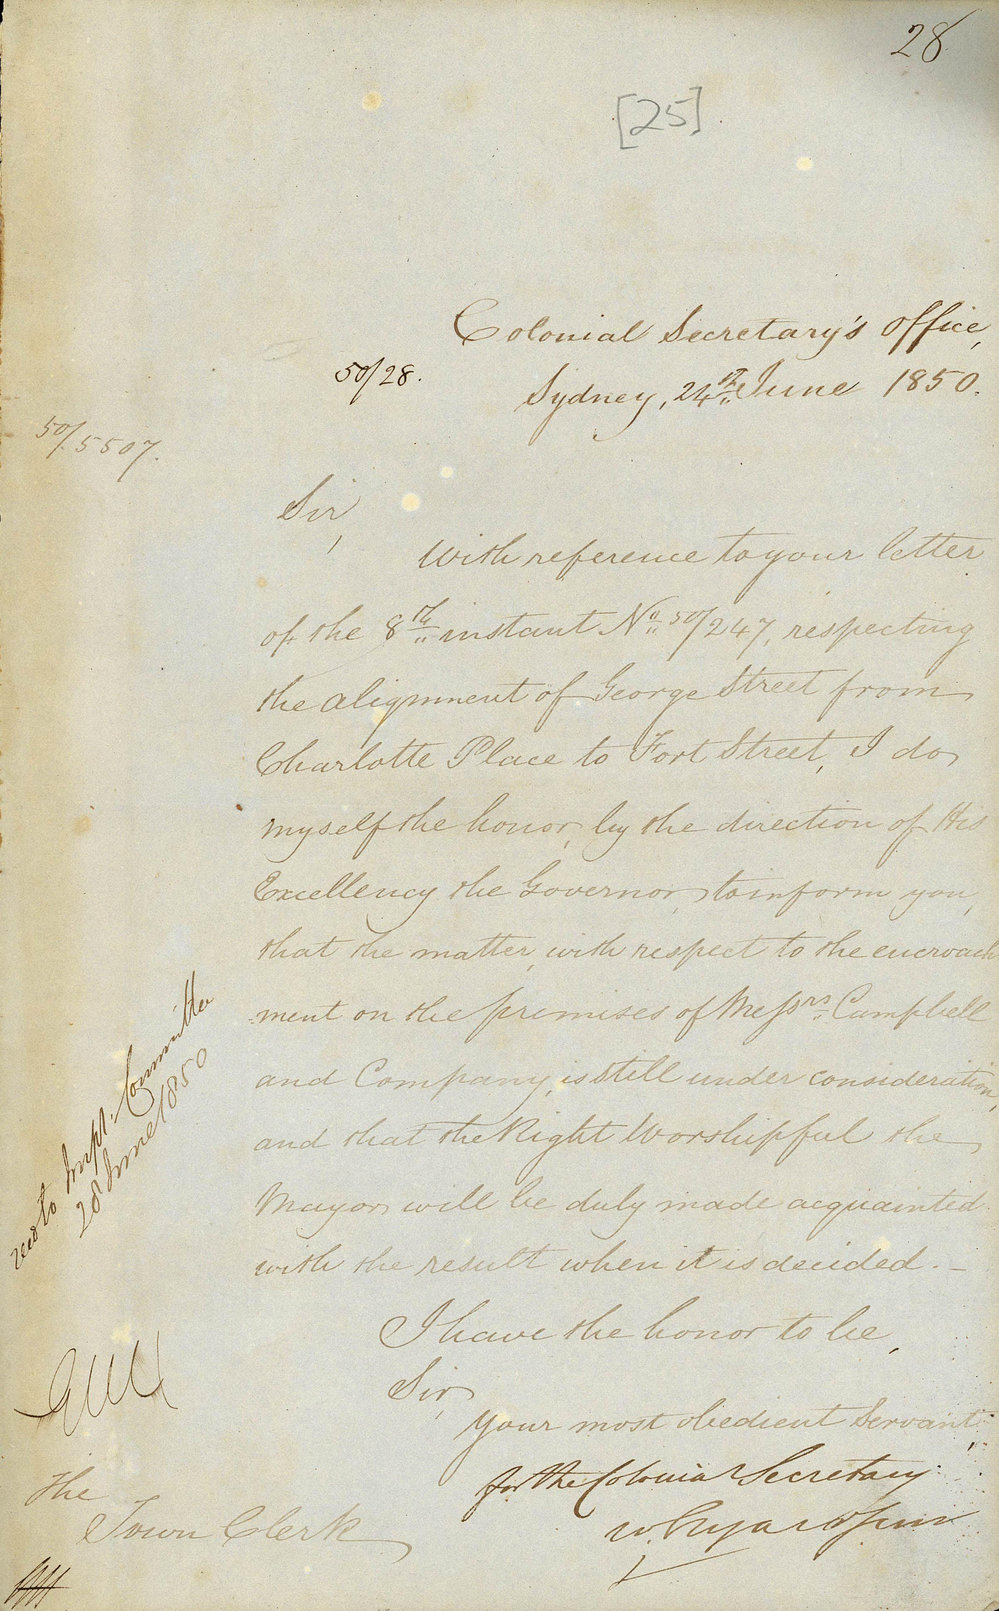 28
[25]
Colonial Secretary's Office,
50/28.
Sydney, 24th June 1850.
50/5507.
Sir,
With reference to your letter
of the 8th instant No 50/247, respecting
the alignment of George Street from
Charlotte Place to Fort Street, I do
myself the honor, by the direction of His
Excellency the Governor, to inform you,
that the matter, with respect to the encroach
ment on the premises of Messrs Campbell
and Company, is still under consideration,
and that the Right Worshipful the
Mayor will be duly made acquainted
with the result when it is decided. –
I have the honor to be,
Sir,
Your most obedient Servant,
for the Colonial Secretary
W.
to Impt. Committee
28 June 1850
The
Town Clerk